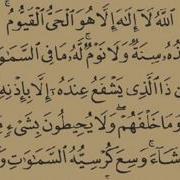 ٱللَّهُ لَآ إِلَٰهَ إِلَّا هُوَ ٱلْحَىُّ ٱلْقَيُّومُ ۚ
ذُهُۥ سِنَةٌ وَلَا نَوْمٌ ۚ لَّهُۥ مَا فِى ٱلسَّمَٰوَٰ
ن ذَا ٱلَّذِى يَشْفَعُ عِندَهُۥٓ إِلَّا بِإِذْنِهِ
وَمَا خَلْفَهُمْ ۖ وَلَا يُحِيطُونَ بِشَىْءٍ
شَآءَ ۚ وَسِعَ كُرْسِيُّهُ ٱلسَّمَٰوَٰتِ وَ